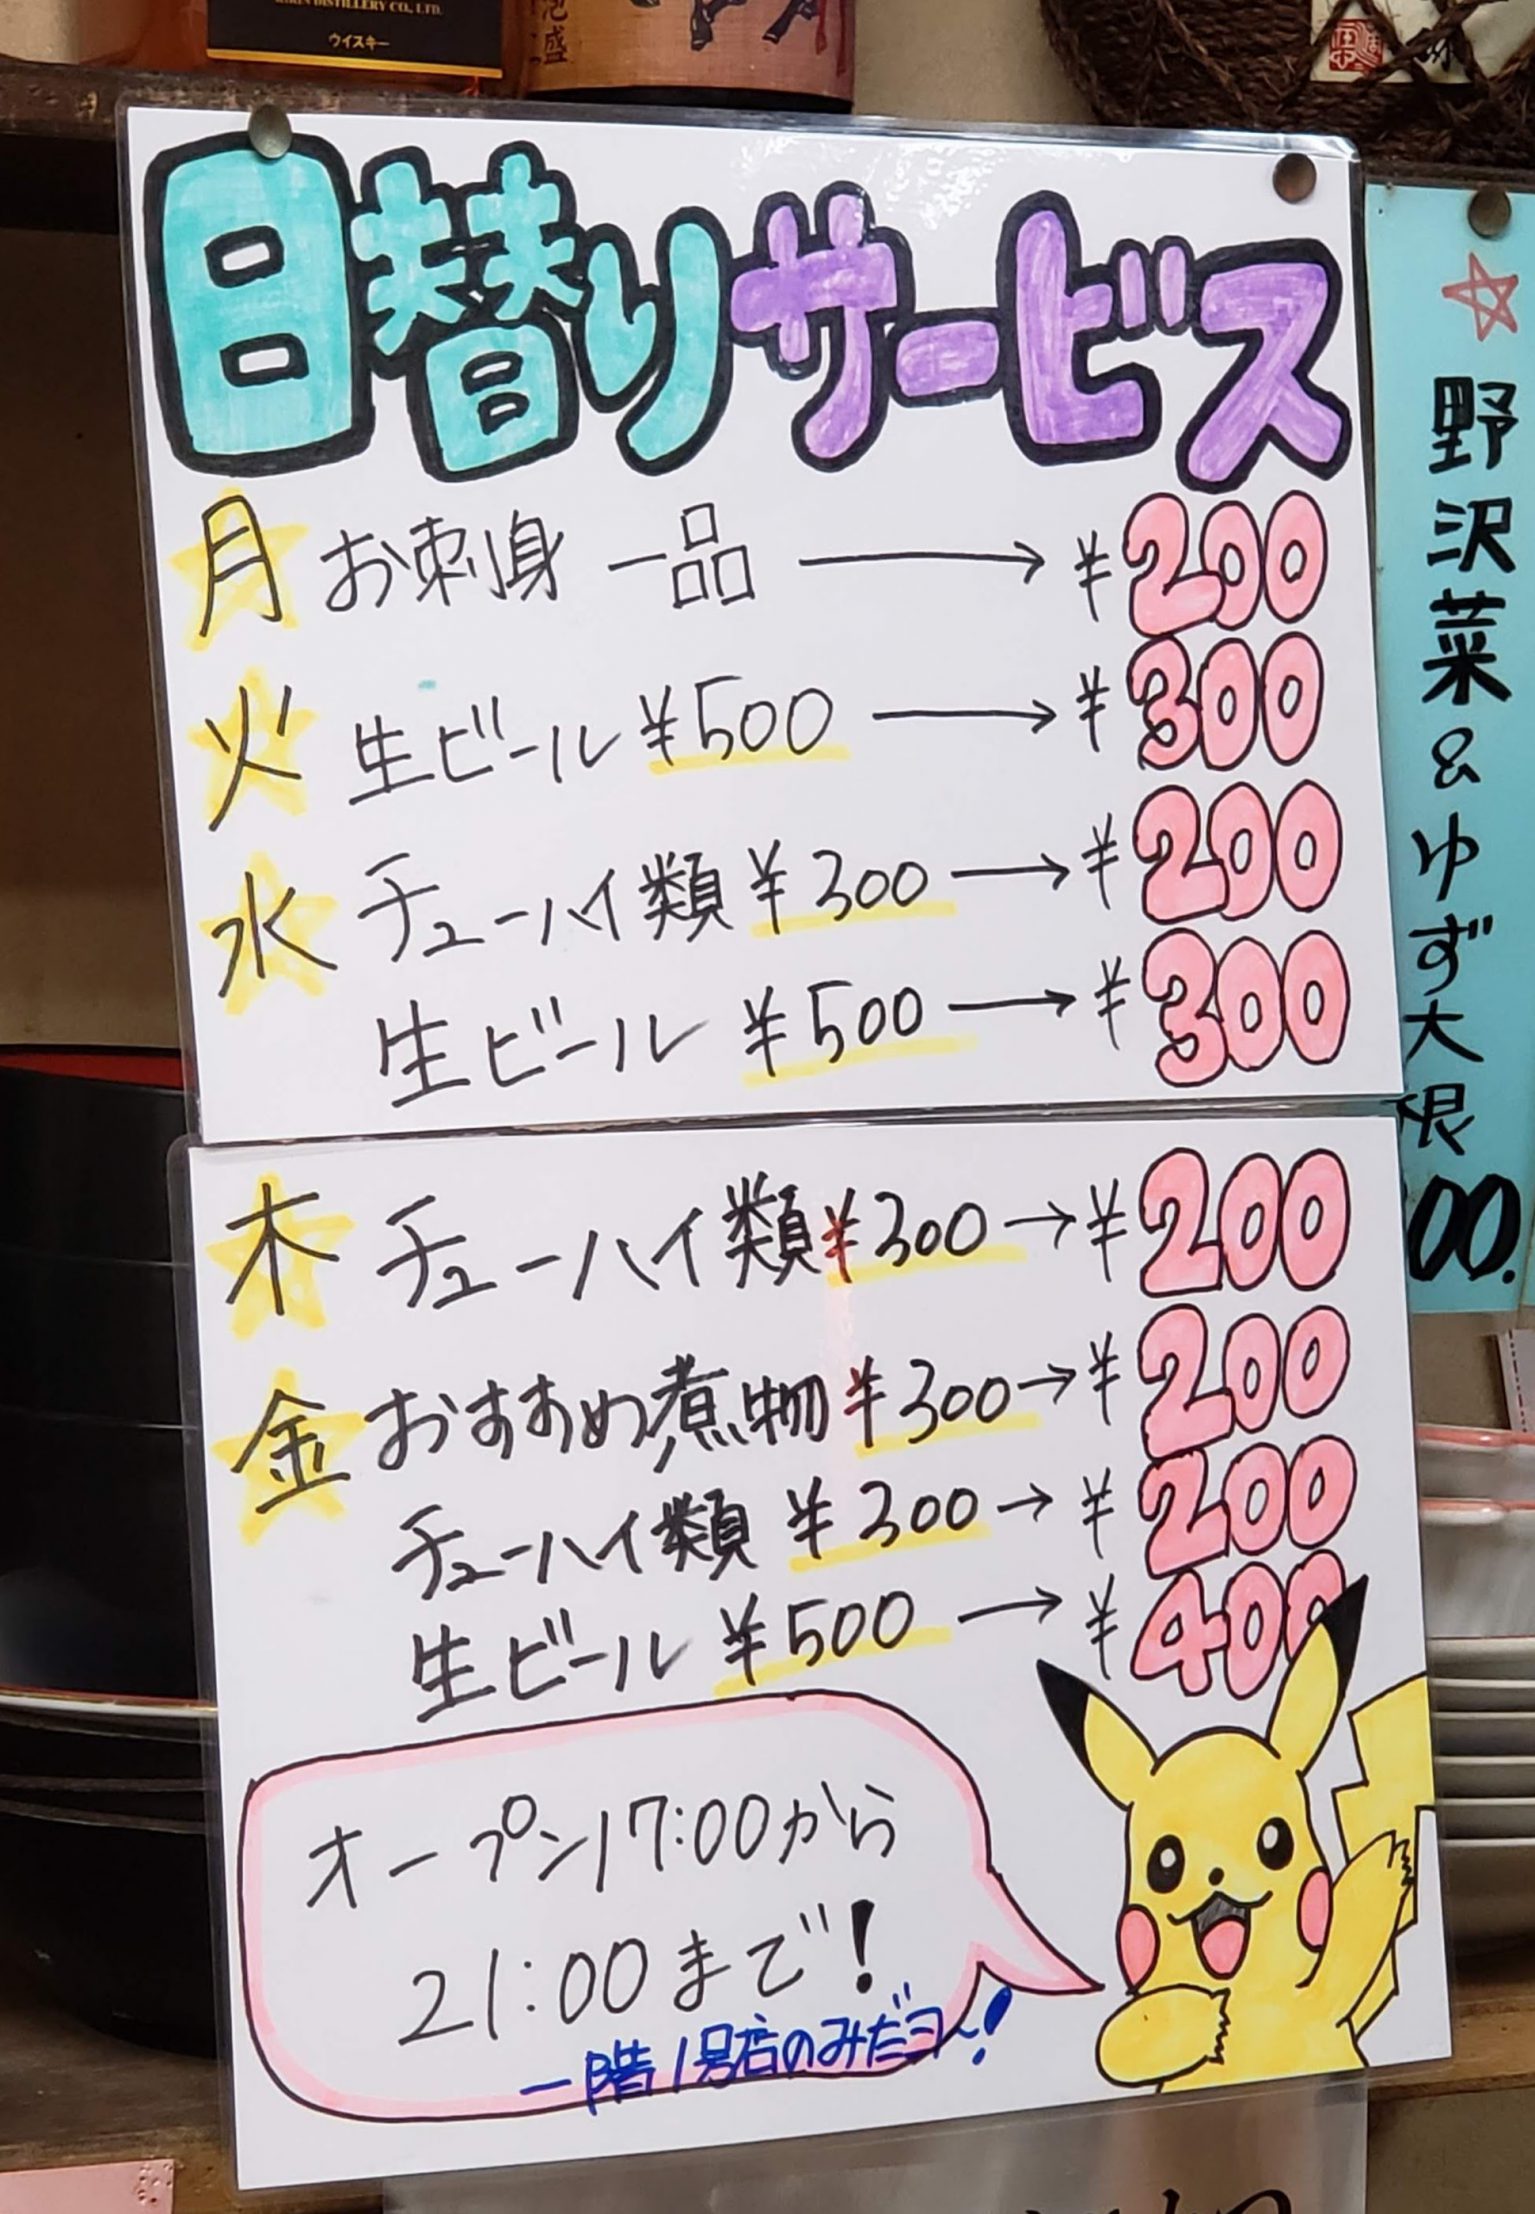 KIRIN DISTILLERY CO., LTD.
ウイスキー
泡盛
日替りサービス
月 お刺身 一品 → ¥200
火 生ビール ¥500 → ¥300
水 チューハイ類 ¥300 → ¥200
生ビール ¥500 → ¥300
木 チューハイ類 ¥300 → ¥200
金 おすすめ煮物 ¥300 → ¥200
チューハイ類 ¥300 → ¥200
生ビール ¥500 → ¥400
オープン17:00から
21:00まで!
一階1号店のみだヨ〜!
☆野沢菜&ゆず大根
00.